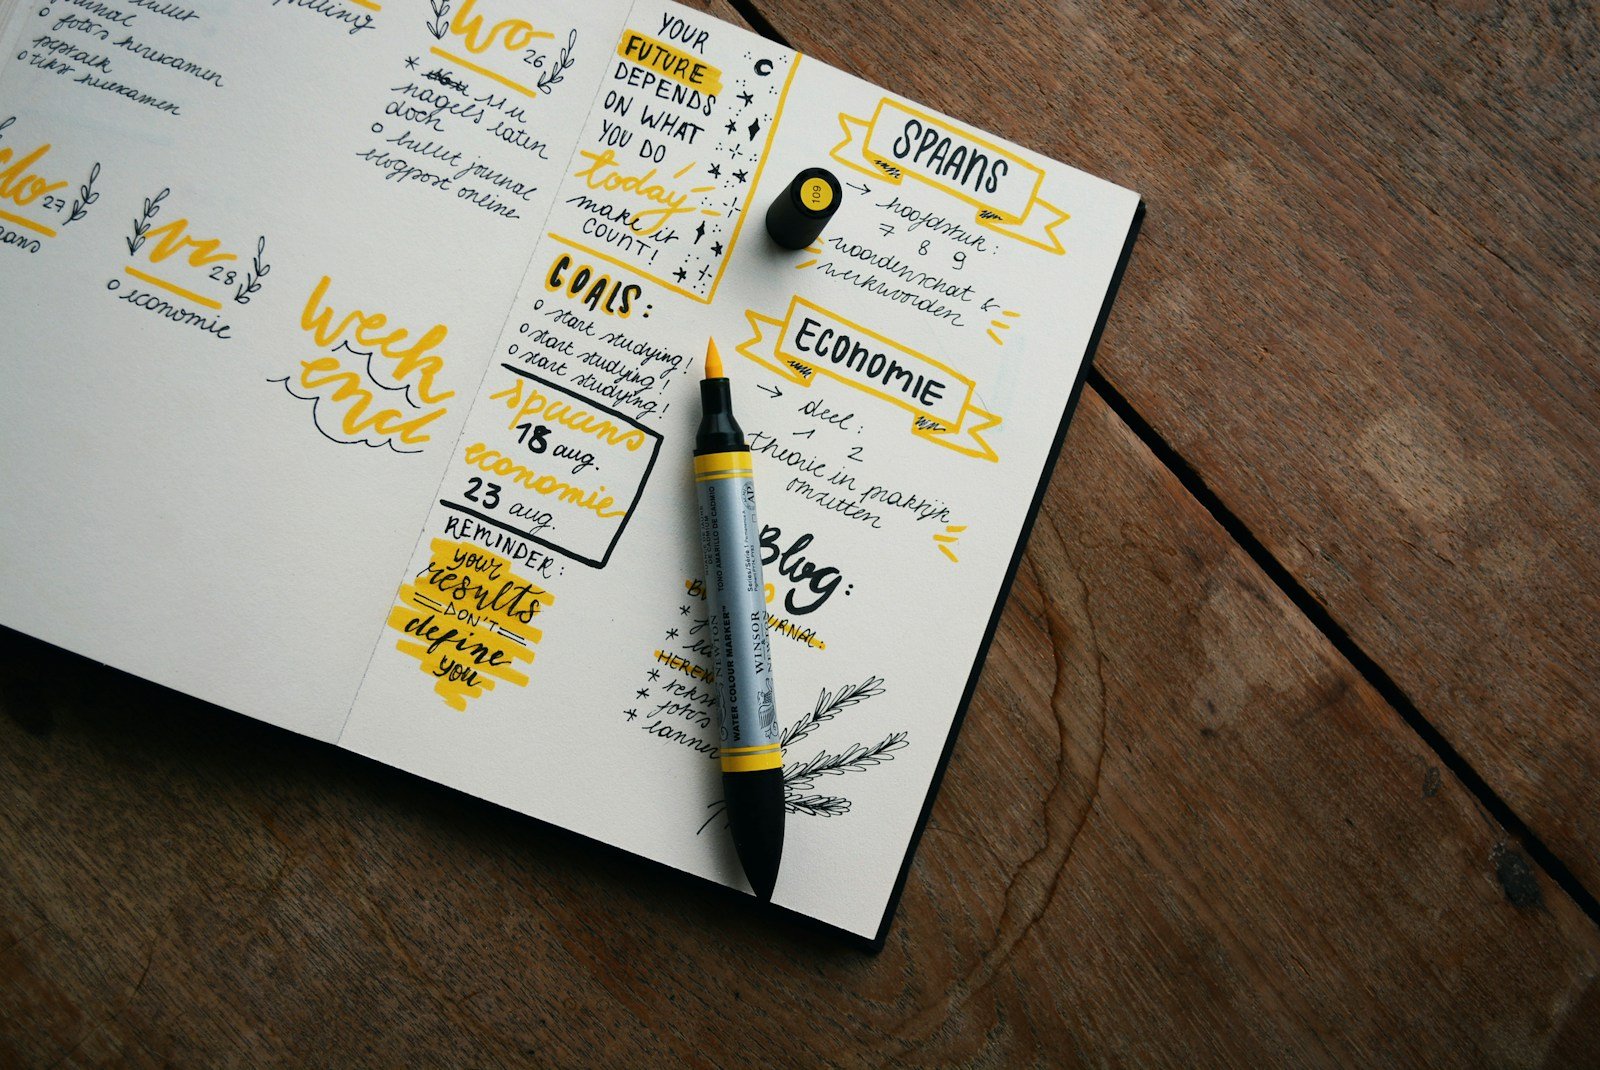 bullet
journal
o foto's herexamen
peptalk
o tekst herexamen
wo
26
* 11 u
nagels laten
doen
o bullet journal
blogpost online
do
27
vr
28
o economie
week
end
YOUR
FUTURE
DEPENDS
ON WHAT
YOU DO
today
make it
COUNT!
GOALS:
o start studying!
o start studying!
o start studying!
spaans
18 aug.
economie
23 aug.
REMINDER:
your
results
DON'T
define
you
SPAANS
→ hoofdstuk:
7 8 9
woordenschat &
werkwoorden
ECONOMIE
→ deel:
1 2
theorie in praktijk
omzetten
Blog:
URNAL:
HEREX
* tekst
* foto's
* lanner
109
WINSOR
NEWTON
WATER COLOUR MARKER™
TONO AMARILLO DE CADMIO
Series/Série 1